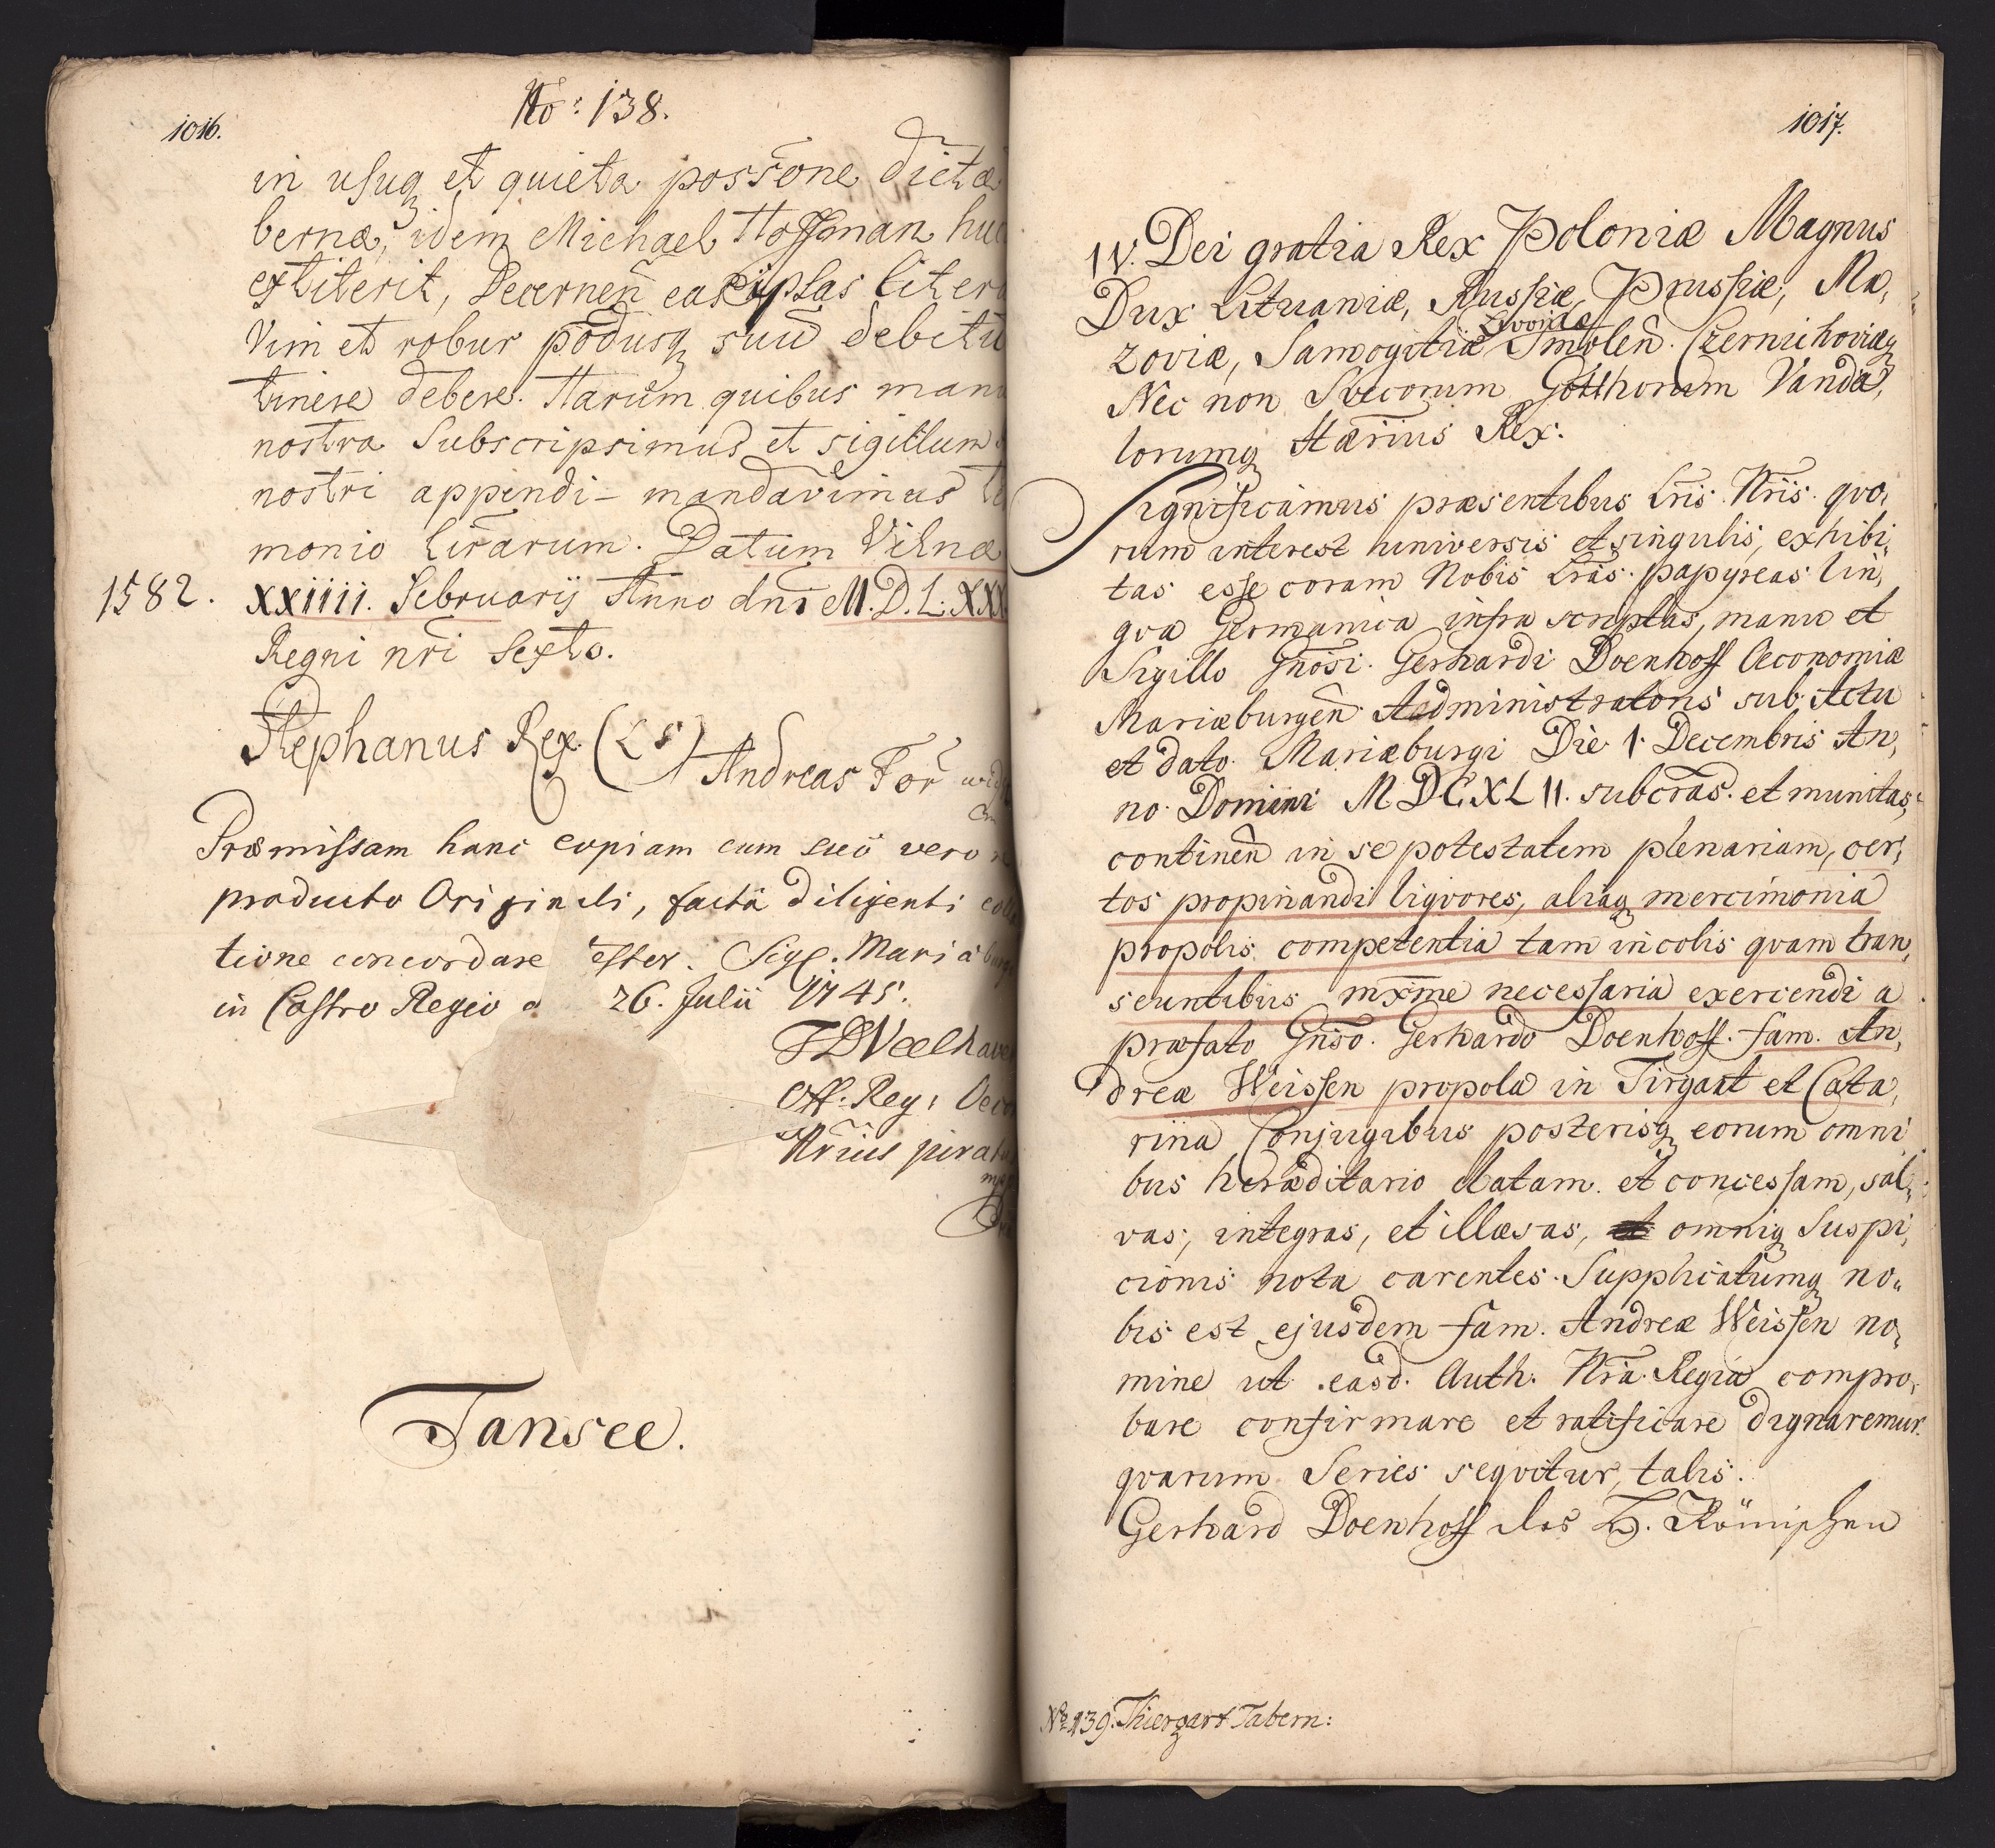 No: 138.
1016.
in usuq et quieta possone dictæ
bernæ, idem Michael Hoffman huc
extiterit, Decernen eas ipsas litera
Vim et robur podusq suū debitū
tinere debere. Harum quibus manu
nostra Subscripsimus et sigillum
nostri appendi- mandavimus te
monio lirarum. Datum Vilnæ
1582. XXIIII. Februarij Anno dni M.D.L.XXX
Regni nri Sexto.
Stephanus Rex. (LS)
Andreas For
Præmissam hanc copiam cum suo vero
producto Originali, facta diligenti colla
tione concordare testor. Sigl. Mariæburg
in Castro Regio d 26. Julii 1745.
Off. Reg: Oeco
Nrius jurat
Tansee.
1017.
IV. Dei gratia Rex Poloniæ Magnus
Dux Lituaniæ, Russiæ, Prussiæ, Ma,
zoviæ, Samogitiæ Livoniæ Smolen. Czernichoviæq
Nec non Svecorum Gotthorum Vanda,
lorumq Hærius Rex.
Significamus præsentibus Lris. Nris. qvo,
rum interest universis et singulis, exhibi,
tas esse coram Nobis Lras. papyreas lin,
gva Germanica infra scriptas, manu et
Sigillo Gnosi. Gerhardi Doenhoff Oeconomiæ
Mariæburgen Administratoris sub Actu
et dato Mariæburgi Die 1. Decembris An,
no Domini MDCXLII. subcras. et munitas,
continen in se potestatem plenariam, cer,
tos propinandi liqvores, aliaq mercimonia
propolis competentia tam incolis qvam tran,
seuntibus mxme necessaria exercendi a
præfato Gnso. Gerhardo Doenhoff. fam. An,
dreæ Weissen propolæ in Tirgart et Cata,
rina Conjugibus posterisq eorum omni
bus hæræditario datam et concessam, sal,
vas, integras, et illæsas, omniq Suspi,
cionis nota carentes. Supplicatumq no,
bis est ejusdem fam. Andreæ Weissen no,
mine ut easd. Auth. Nra. Regia compro,
bare confirmare et ratificare dignaremur.
qvarum Series seqvitur talis.
Gerhard Doenhoff des H. Römischen
No 139. Thiergart Tabern: